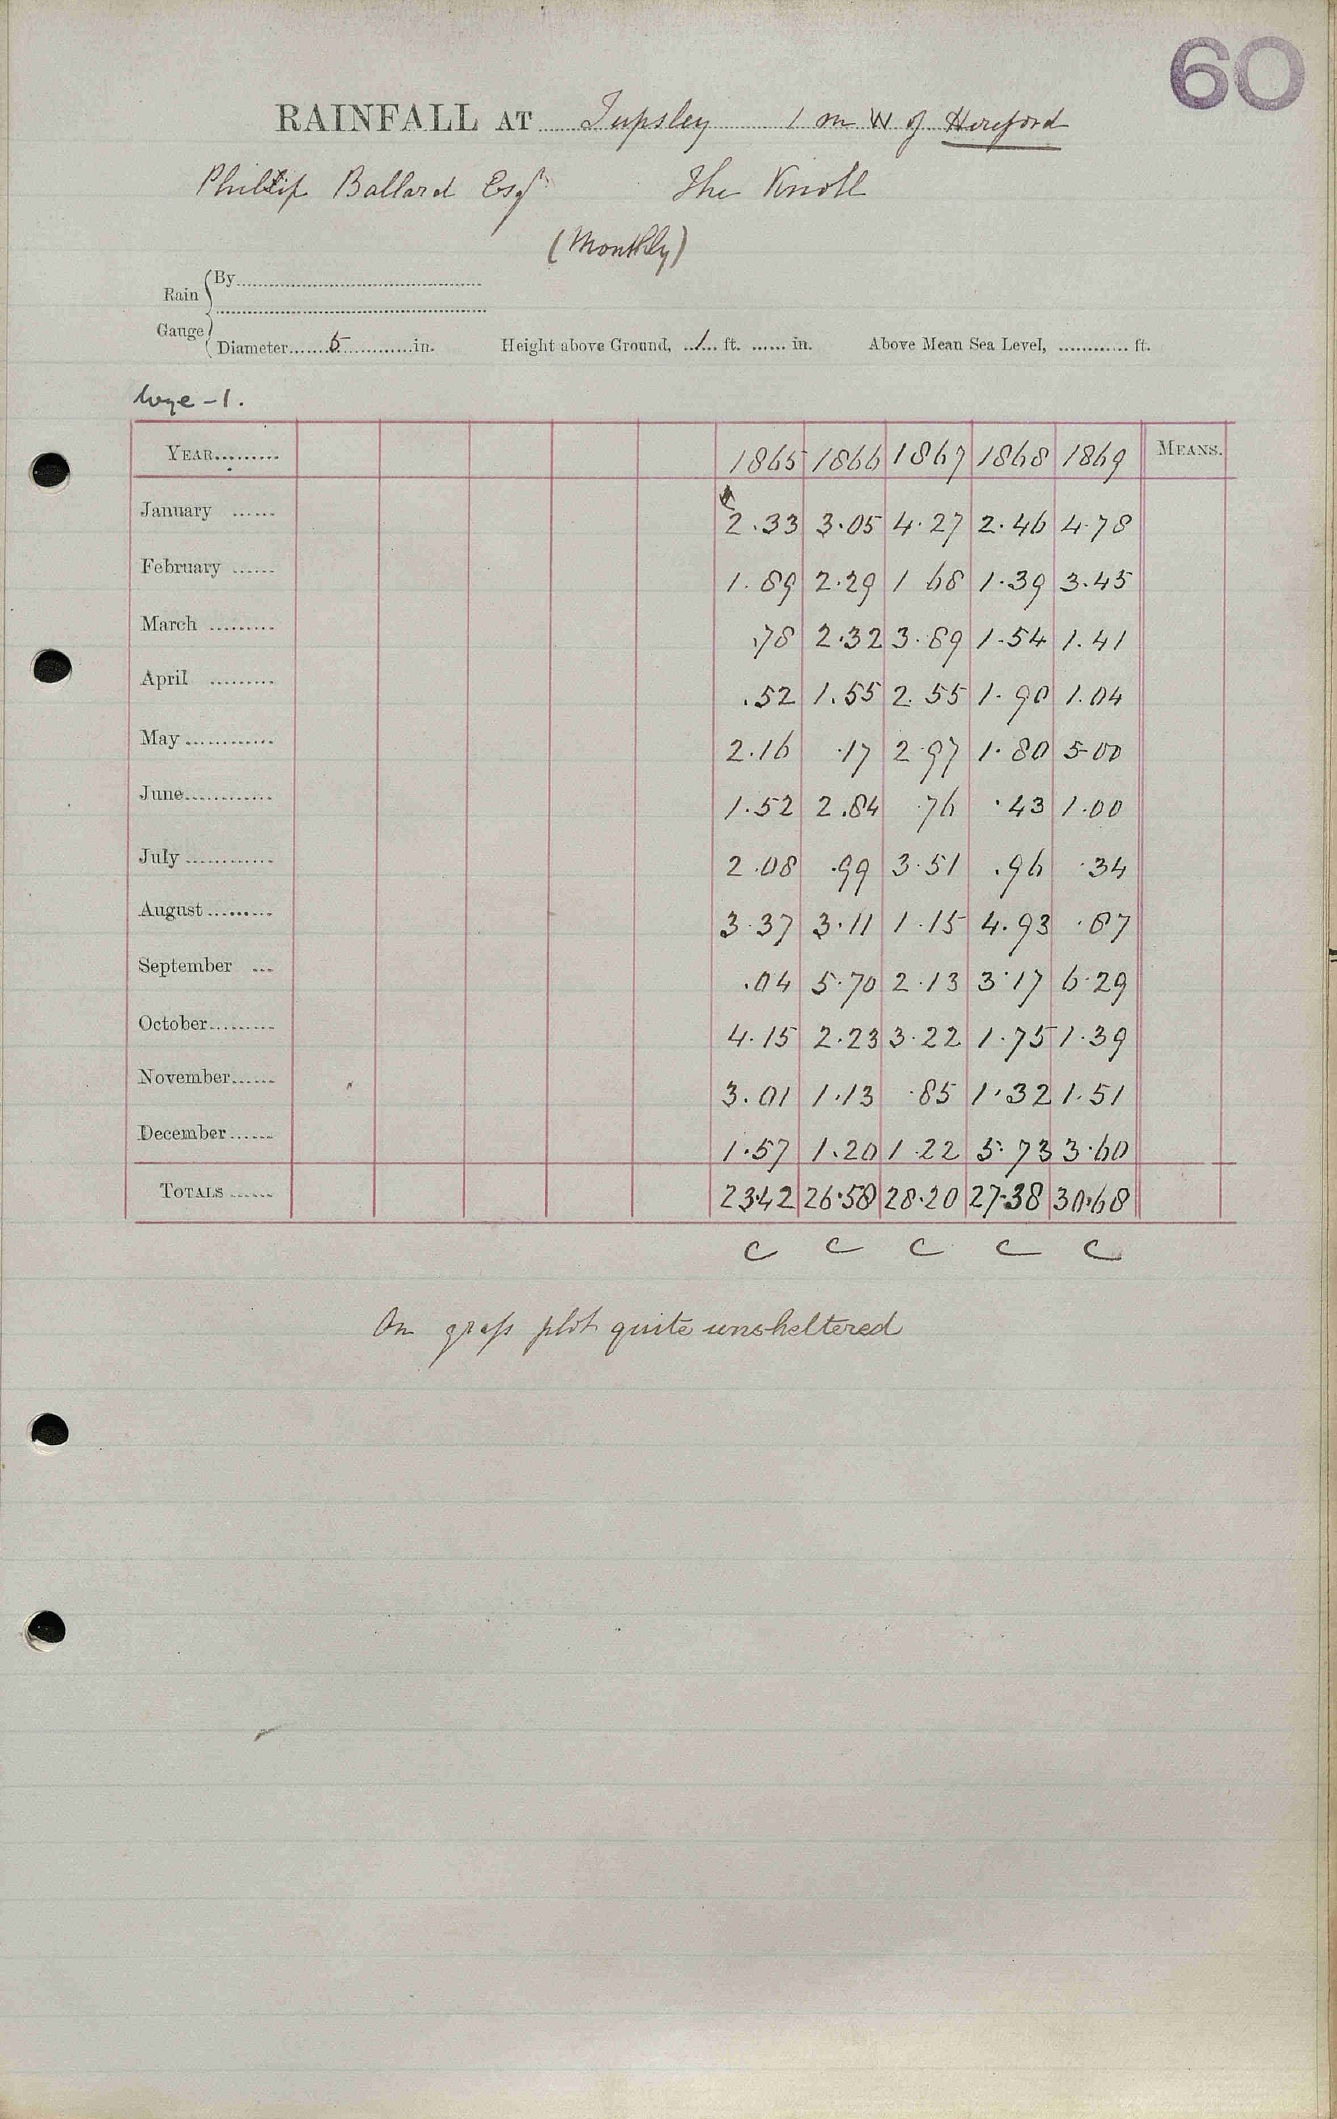 60
RAINFALL AT Tupsley 1 m W of Hereford
Phillip Ballard Esqr The Knoll
(Monthly)
Rain Gauge By
Diameter 5 in. Height above Ground, 1 ft. in. Above Mean Sea Level, ft.
Wye - 1.
YEAR 1865 1866 1867 1868 1869 MEANS.
January 2.33 3.05 4.27 2.46 4.78
February 1.89 2.29 1 68 1.39 3.45
March .78 2.32 3.89 1.54 1.41
April .52 1.55 2.55 1.90 1.04
May 2.16 .17 2.97 1.80 5.00
June 1.52 2.84 .76 .43 1.00
July 2.08 .99 3.51 .96 .34
August 3.37 3.11 1.15 4.93 .87
September .04 5.70 2.13 3.17 6.29
October 4.15 2.23 3.22 1.75 1.39
November 3.01 1.13 .85 1.32 1.51
December 1.57 1.20 1.22 5.73 3.60
TOTALS 23.42 26.58 28.20 27.38 30.68
C C C C C
On grass plot quite unsheltered